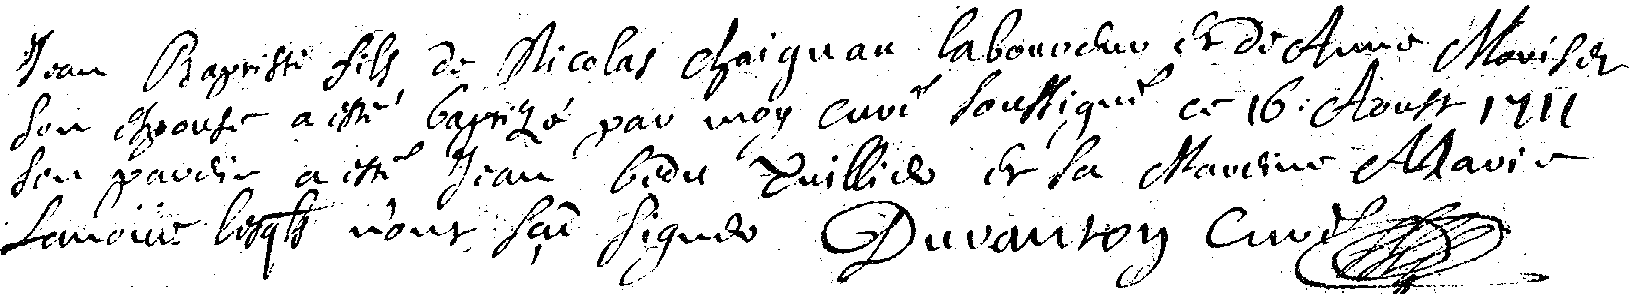 Jean Baptiste fils de Nicolas Chaignau laboureur et de Anne
son espouse a esté baptizé par moy curé soussigné ce 16. Aoust 1711
son parein a esté Jean et la Mareine Marie
lesqls n'ont sçeu signer Duvanroy Curé